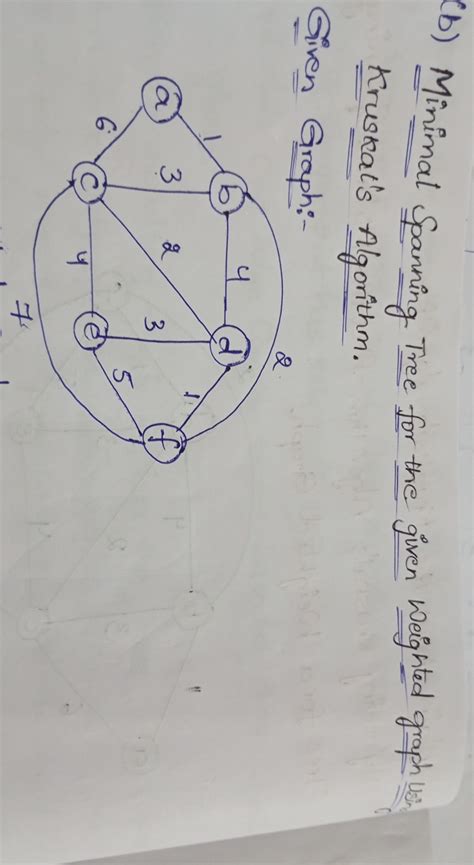 (b) Minimal Spanning Tree for the given Weighted graph Using
Kruskal's Algorithm.
Given Graph:-
2
a 1 b 4 d 1 f
6 3 2 3 5
c 4 e
7